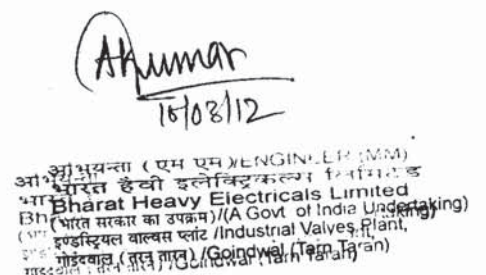 AKumar
16/03/12
अभियन्ता (एम एम)/ENGINEER (MM)
भारत हैवी इलेक्ट्रिकल्स लिमिटेड
Bharat Heavy Electricals Limited
(भारत सरकार का उपक्रम)/(A Govt of India Undertaking)
इण्डस्ट्रियल वाल्वस प्लांट /Industrial Valves Plant,
गोईंदवाल (तरन तारन) /Goindwal (Tarn Taran)